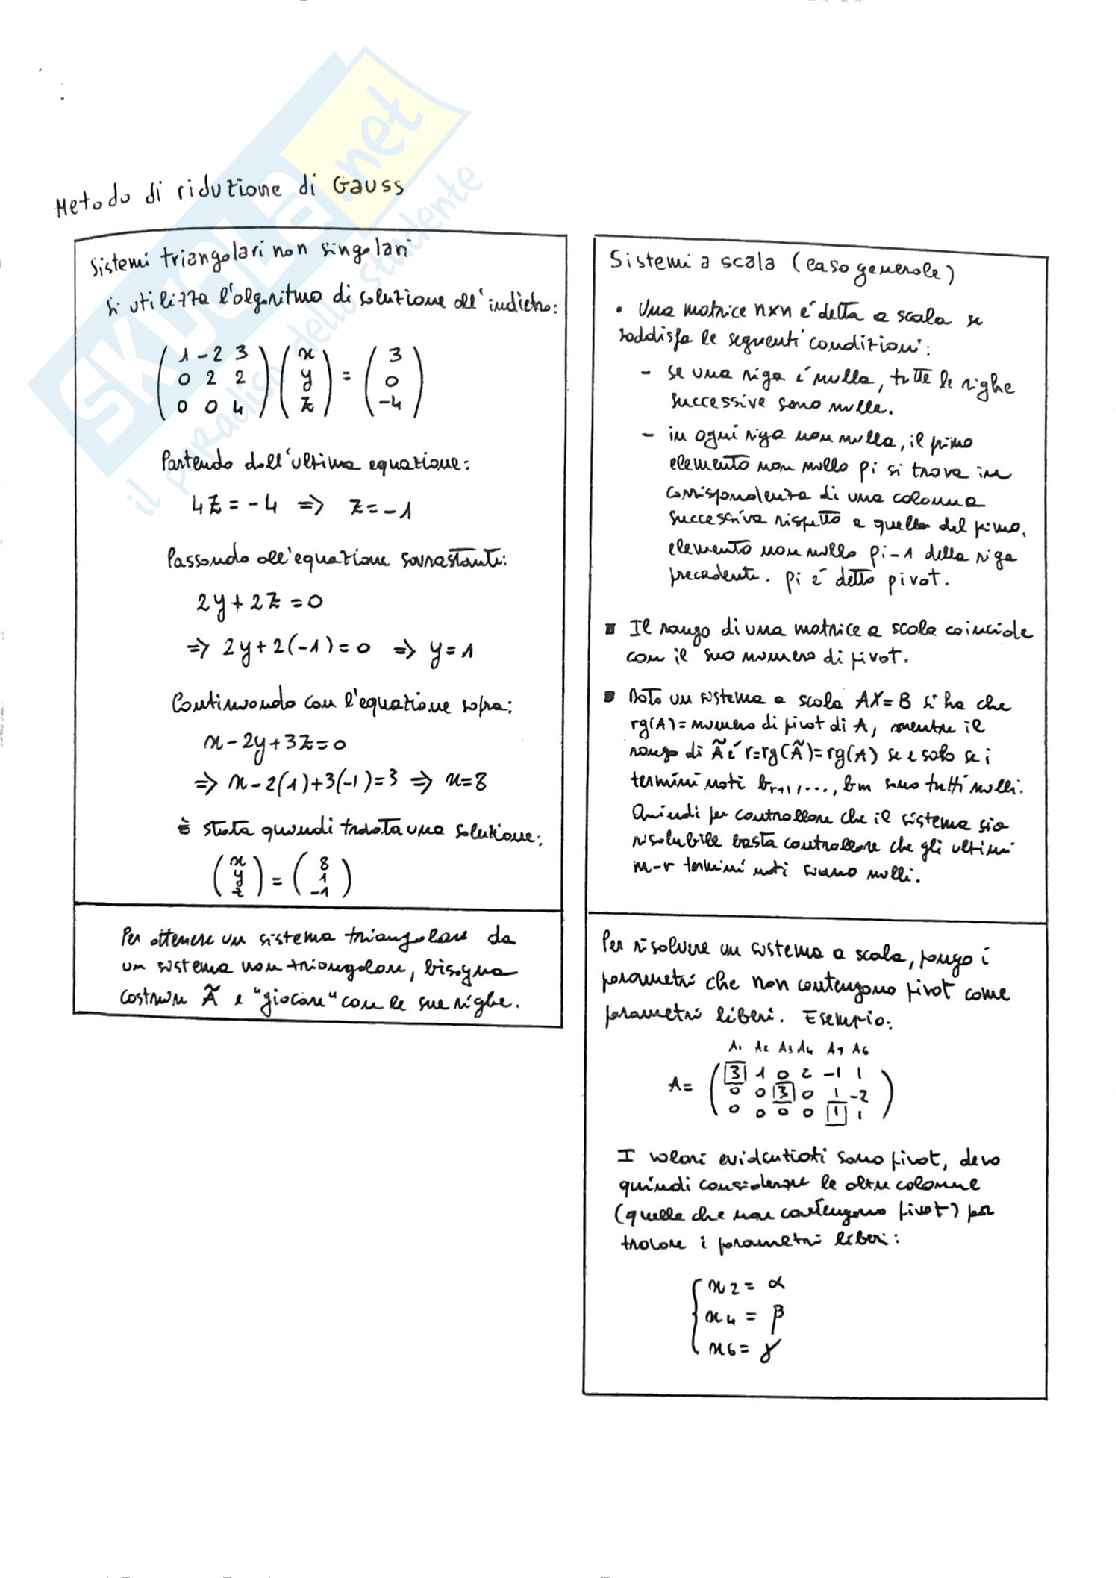 SKUOLA.net
il paradiso dello studente
Metodo di riduzione di Gauss
Sistemi triangolari non singolari
Si utilizza l'algoritmo di soluzione all'indietro:
( 1 -2 3 ) ( x ) ( 3 )
( 0 2 2 ) ( y ) = ( 0 )
( 0 0 4 ) ( z ) ( -4 )
Partendo dall'ultima equazione:
4z = -4 => z = -1
Passando all'equazione sovrastante:
2y + 2z = 0
=> 2y + 2(-1) = 0 => y = 1
Continuando con l'equazione sopra:
x - 2y + 3z = 0
=> x - 2(1) + 3(-1) = 3 => x = 8
È stata quindi trovata una soluzione:
( x ) ( 8 )
( y ) = ( 1 )
( z ) ( -1 )
Per ottenere un sistema triangolare da
un sistema non triangolare, bisogna
costruire Ã e "giocare" con le sue righe.
Sistemi a scala (caso generale)
• Una matrice n×n è detta a scala se
soddisfa le seguenti condizioni:
- se una riga è nulla, tutte le righe
successive sono nulle.
- in ogni riga non nulla, il primo
elemento non nullo pi si trova in
corrispondenza di una colonna
successiva rispetto a quella del primo
elemento non nullo pi-1 della riga
precedente. pi è detto pivot.
▪ Il rango di una matrice a scala coincide
con il suo numero di pivot.
▪ Dato un sistema a scala AX = B si ha che
rg(A) = numero di pivot di A, mentre il
rango di Ã è r = rg(Ã) = rg(A) se e solo se i
termini noti br+1, ..., bm sono tutti nulli.
Quindi per controllare che il sistema sia
risolubile basta controllare che gli ultimi
m-r termini noti siano nulli.
Per risolvere un sistema a scala, pongo i
parametri che non contengono pivot come
parametri liberi. Esempio:
A1 A2 A3 A4 A5 A6
( 3 1 0 2 -1 1 )
A = ( 0 0 3 0 1 -2 )
( 0 0 0 0 1 1 )
I valori evidenziati sono pivot, devo
quindi considerare le altre colonne
(quelle che non contengono pivot) per
trovare i parametri liberi:
{ x2 = α
x4 = β
x6 = γ